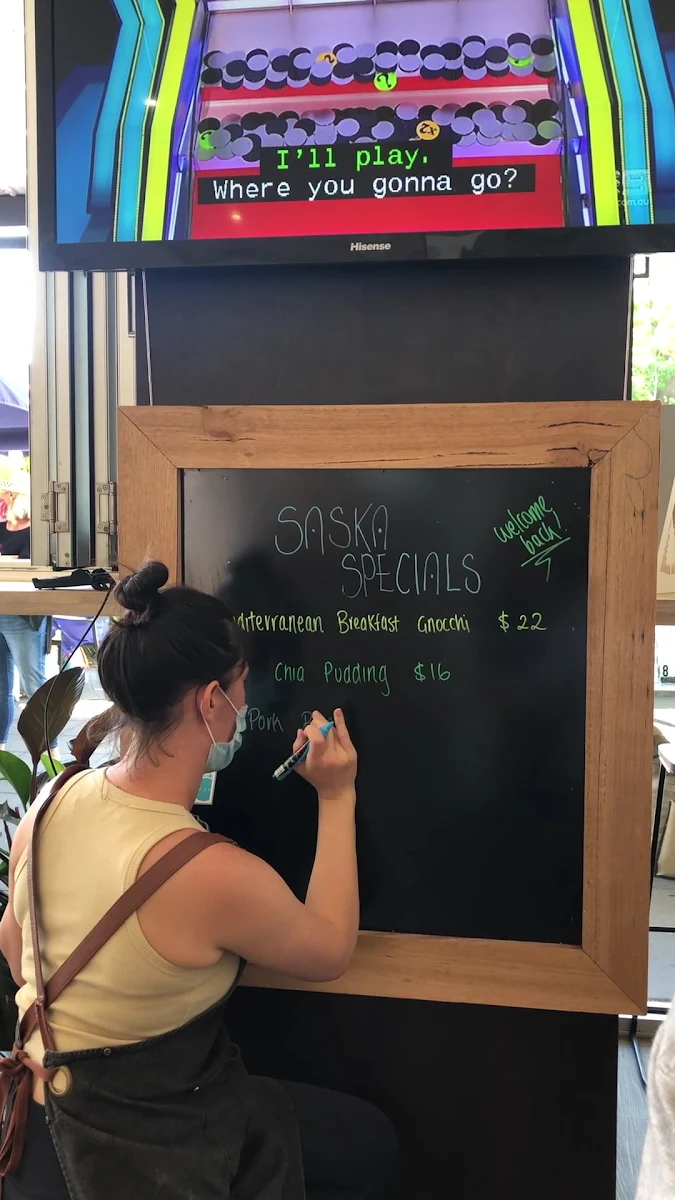 I'll play.
Where you gonna go?
.com.au
Hisense
SASKA
SPECIALS
welcome
back!
diterranean Breakfast Gnocchi $22
Chia Pudding $16
Pork
8